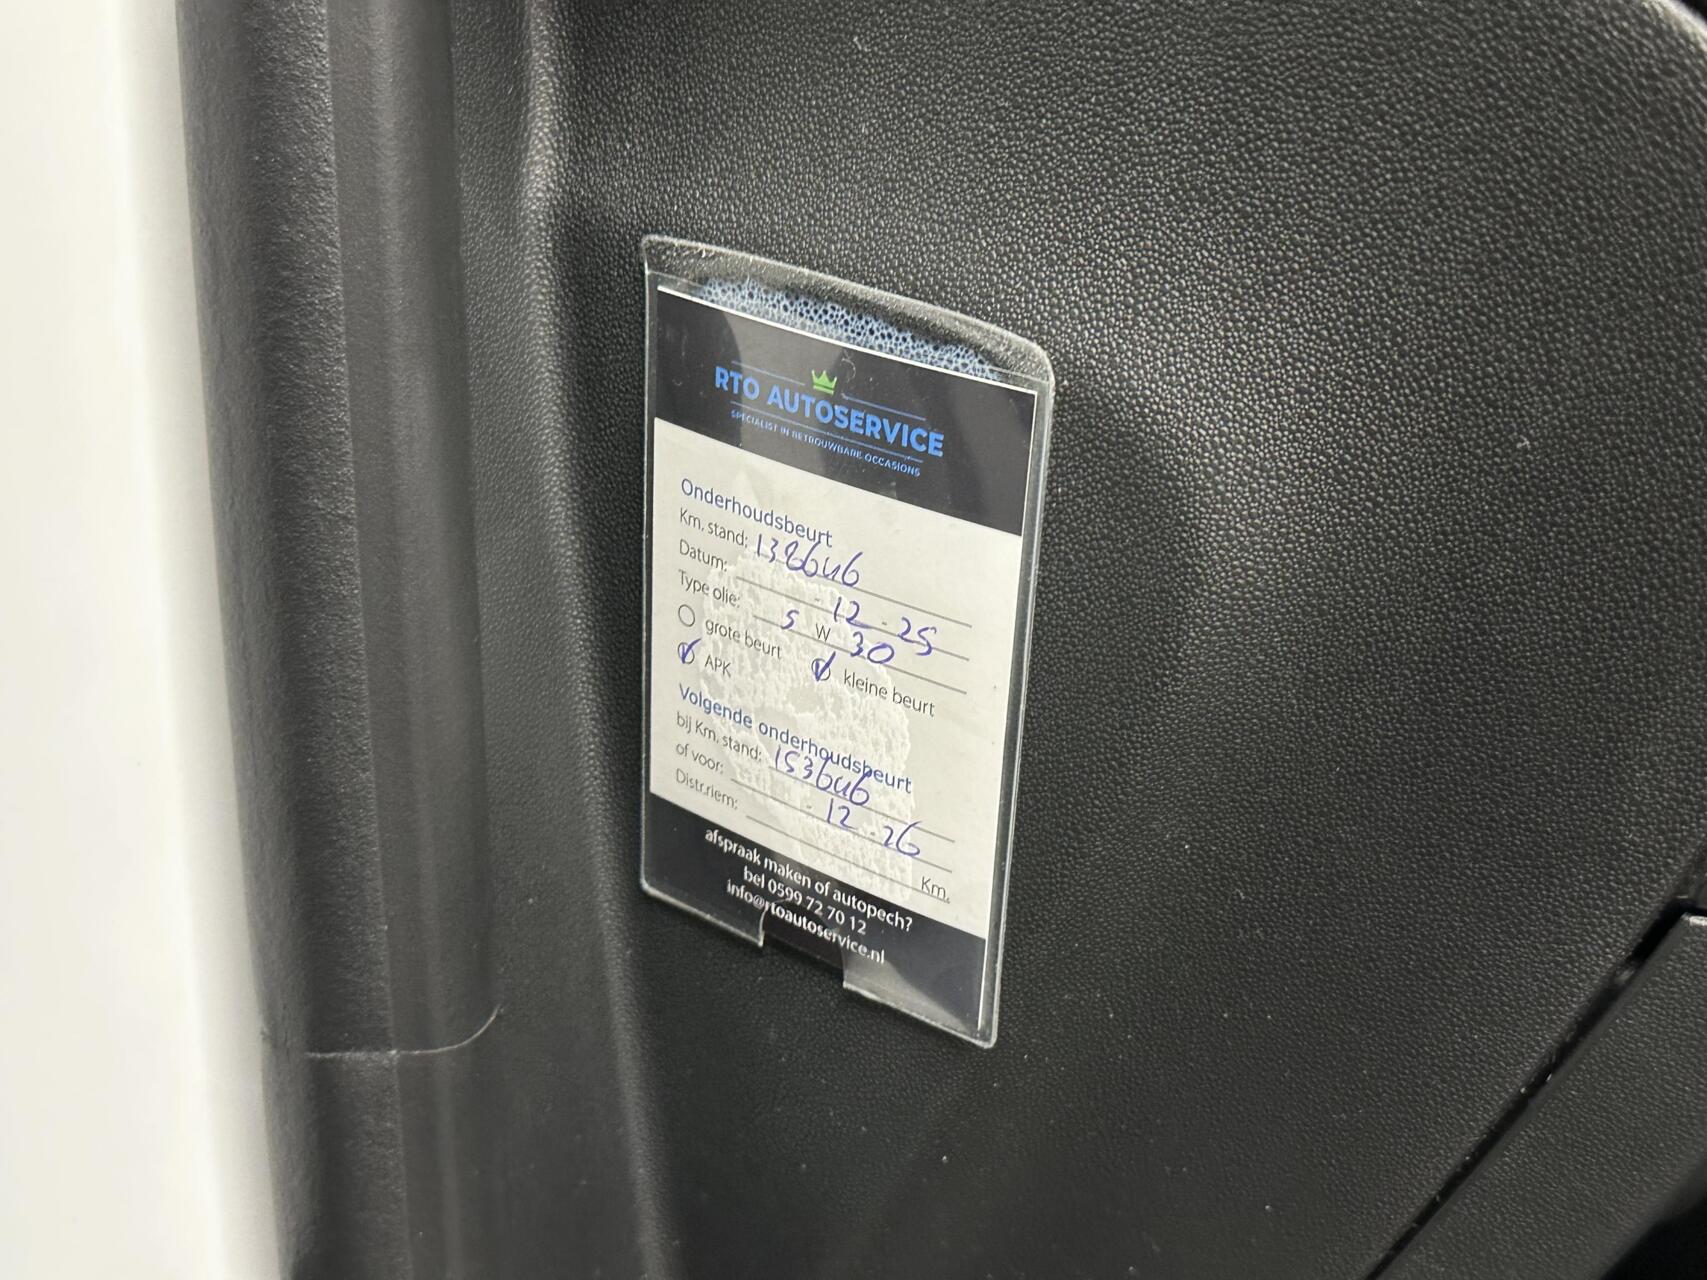 RTO AUTOSERVICE
SPECIALIST IN BETROUWBARE OCCASIONS
Onderhoudsbeurt
Km. stand: 138646
Datum: - 12 - 25
Type olie: 5 W 30
grote beurt kleine beurt
APK
Volgende onderhoudsbeurt
bij Km. stand: 153646
of voor: - 12 - 26
Distr.riem: Km.
afspraak maken of autopech?
bel 0599 72 70 12
info@rtoautoservice.nl